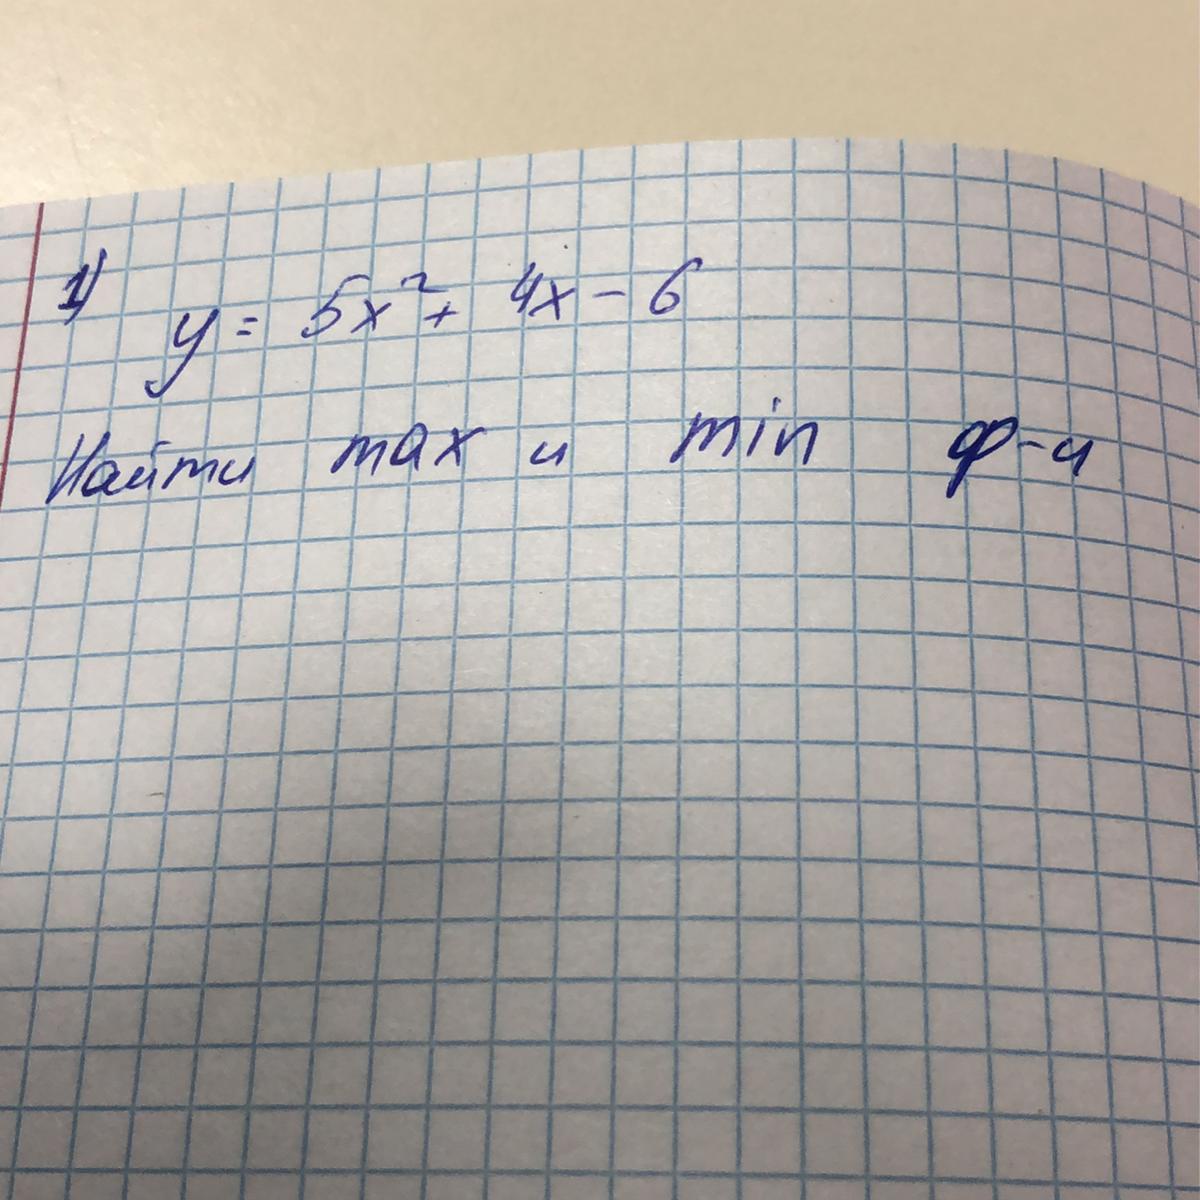 1) y = 5x² + 4x - 6
Найти max и min ф-и